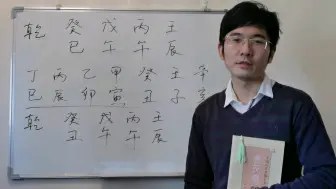 乾 癸 戊 丙 壬
巳 午 午 辰
丁 丙 乙 甲 癸 壬 辛
巳 辰 卯 寅 丑 子 亥
乾 癸 戊 丙 壬
丑 午 午 辰